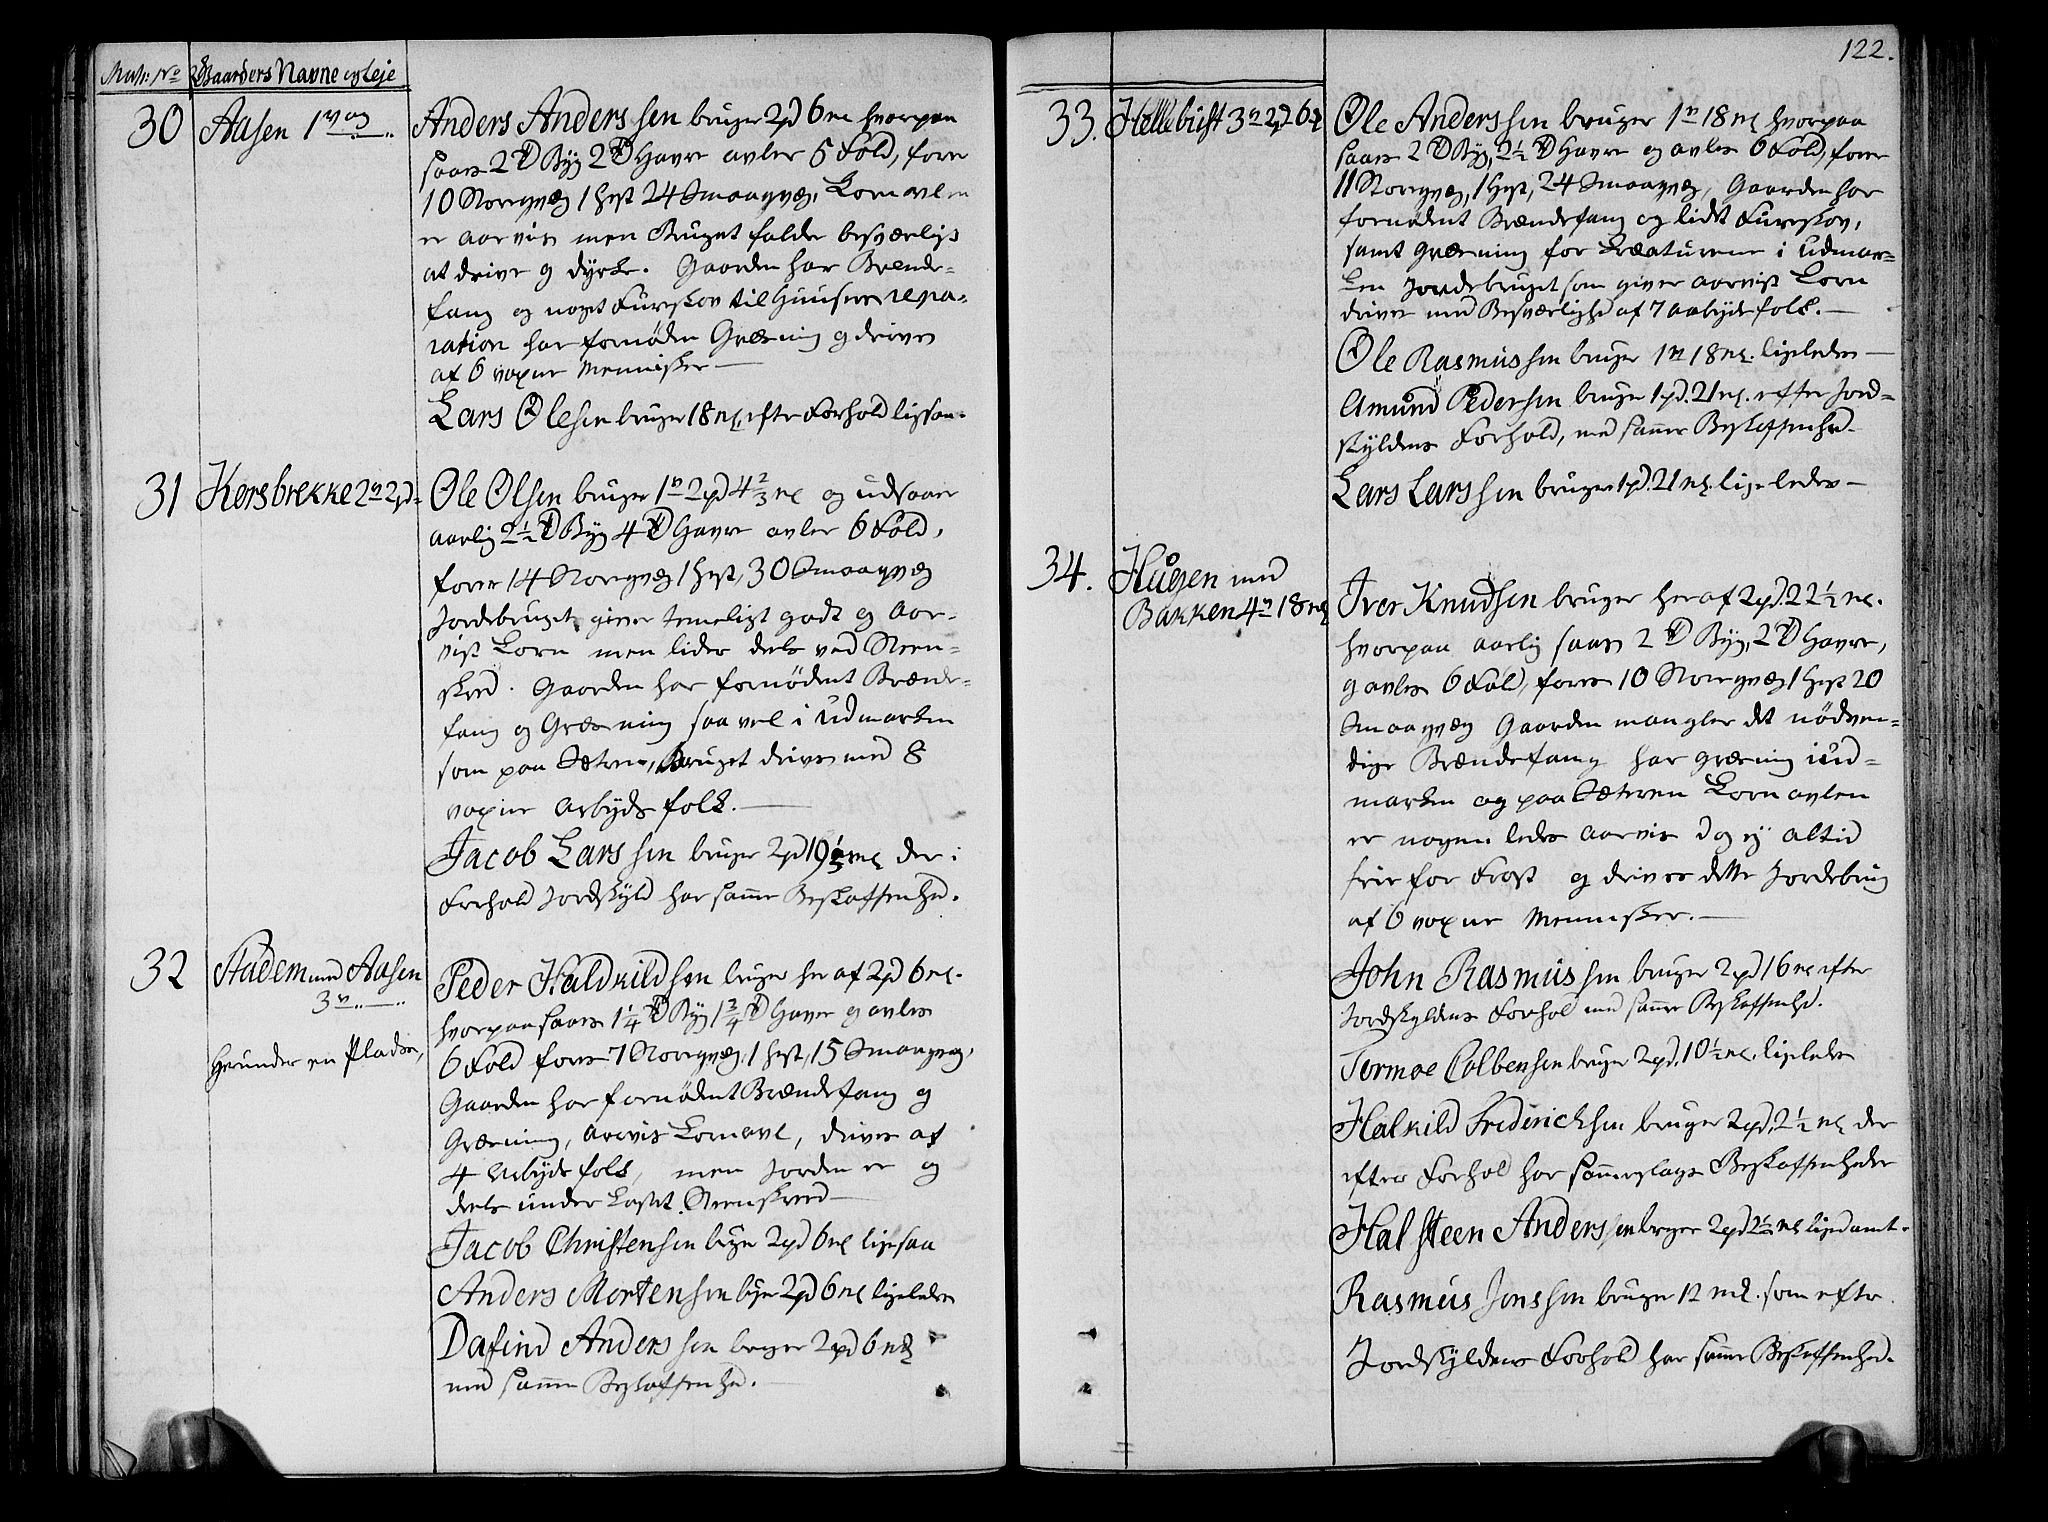 Matr: No Gaardens Navne og Leje
30 Aasen 1 v og
Anders Anderssen bruger 2pd 6 mk hvorpaa
saaes 2 Td Byg 2 Td Havre avler 5 Fold, føder
10 Storqvæg 1 Hest 24 Smaaqvæg, Kornavlen
er aarvis men Bruget falder besværligt
at drive og dyrke. Gaarden har Brænde-
fang og noget Fureskov til Huusenes repa-
ration har fornøden Græsning og drives
af 6 voxne Mennisker —
Lars Olesen bruger 18 mk. efter Forhold ligesaa.
31 Kersbrekke 2 v 2 pd-
Ole Olsen bruger 1 v 2 pd 4 2/3 mk og udsaaer
aarlig 2 1/2 Td Byg 4 Td Havre avler 6 Fold,
føder 14 Storqvæg 1 Hest, 30 Smaaqvæg
Jordebruget giver temeligt godt og aar-
vist Korn men lider dels ved Steen-
skred. Gaarden har fornødent Brænde-
fang og Græsning saavel i Udmarken
som paa Sætren, Bruget drives med 8
voxne Arbeyds folk. —
Jacob Larssen bruger 2 pd 19 1/3 mk der i
Forhold Jordskyld har samme Beskaffenhed.
32 Stadem med Aasen
3 v „ — „
Herunder en Plads,
Peder Haldkildsen bruger her af 2 pd 6 mk.
hvorpaa saaes 1 1/4 Td Byg 1 3/4 Td Havre og avles
6 Fold føder 7 Storqvæg, 1 Hest, 15 Smaaqvæg,
Gaarden har fornødent Brændefang og
Græsning, aarvis Kornavl, drives af
4 Arbeyds folk, men Jorden er og
deels underkastet Steenskred —
Jacob Christensen bruger 2 pd 6 mk ligesaa
Anders Mortensen bruger 2 pd 6 mk ligeledes
Dafind Anderssen bruger 2 pd 6 mk
med samme Beskaffenhed.
122.
33. Hellebust 3 v 2 pd 6 mk
Ole Anderssen bruger 1 v 18 mk hvorpaa
saaes 2 Td Byg, 2 1/2 Td Havre og avles 6 Fold, føder
11 Storqvæg, 1 Hest, 24 Smaaqvæg, Gaarden har
fornødent Brændefang og lidet Fureskov,
samt Græsning for Kreaturene i Udmar-
ken Jordebruget som giver aarvist Korn
drives med Besværlighed af 7 arbeyds folk. —
Ole Rasmussen bruger 1 v 18 mk. ligeledes —
Amund Pedersen bruger 1 pd. 21 mk. efter Jord-
skyldens Forhold, med samme Beskaffenhed
Lars Larssen bruger 1 pd. 21 mk. ligeledes —
34. Hugen med
Bakken 4 v 18 mk
Iver Knudsen bruger her af 2 pd. 22 1/2 mk.
hvorpaa aarlig saaes 2 Td Byg, 2 Td Havre,
og avles 6 Fold, føder 10 Storqvæg 1 Hest 20
Smaaqvæg Gaarden mangler det nødven-
dige Brændefang har græsning i Ud-
marken og paa Sæteren Kornavlen
er nogenledes aarvis dog ej altid
frie for Frost og drives dette Jordebrug
af 6 voxne Mennisker. —
John Rasmussen bruger 2 pd 16 mk efter
Jordskyldens Forhold med samme Beskaffenhed.
Tormoe Colbensen bruger 2 pd. 10 1/2 mk. ligeledes
Halkild Friderichsen bruger 2 pd. 2 1/2 mk der
efter Forhold har sammeslags Beskaffenheder
Halsteen Anderssen bruger 2 pd 2 1/2 mk
Rasmus Jonssen bruger 12 mk. som efter
Jordskyldens Forhold har samme Beskaffenhed.